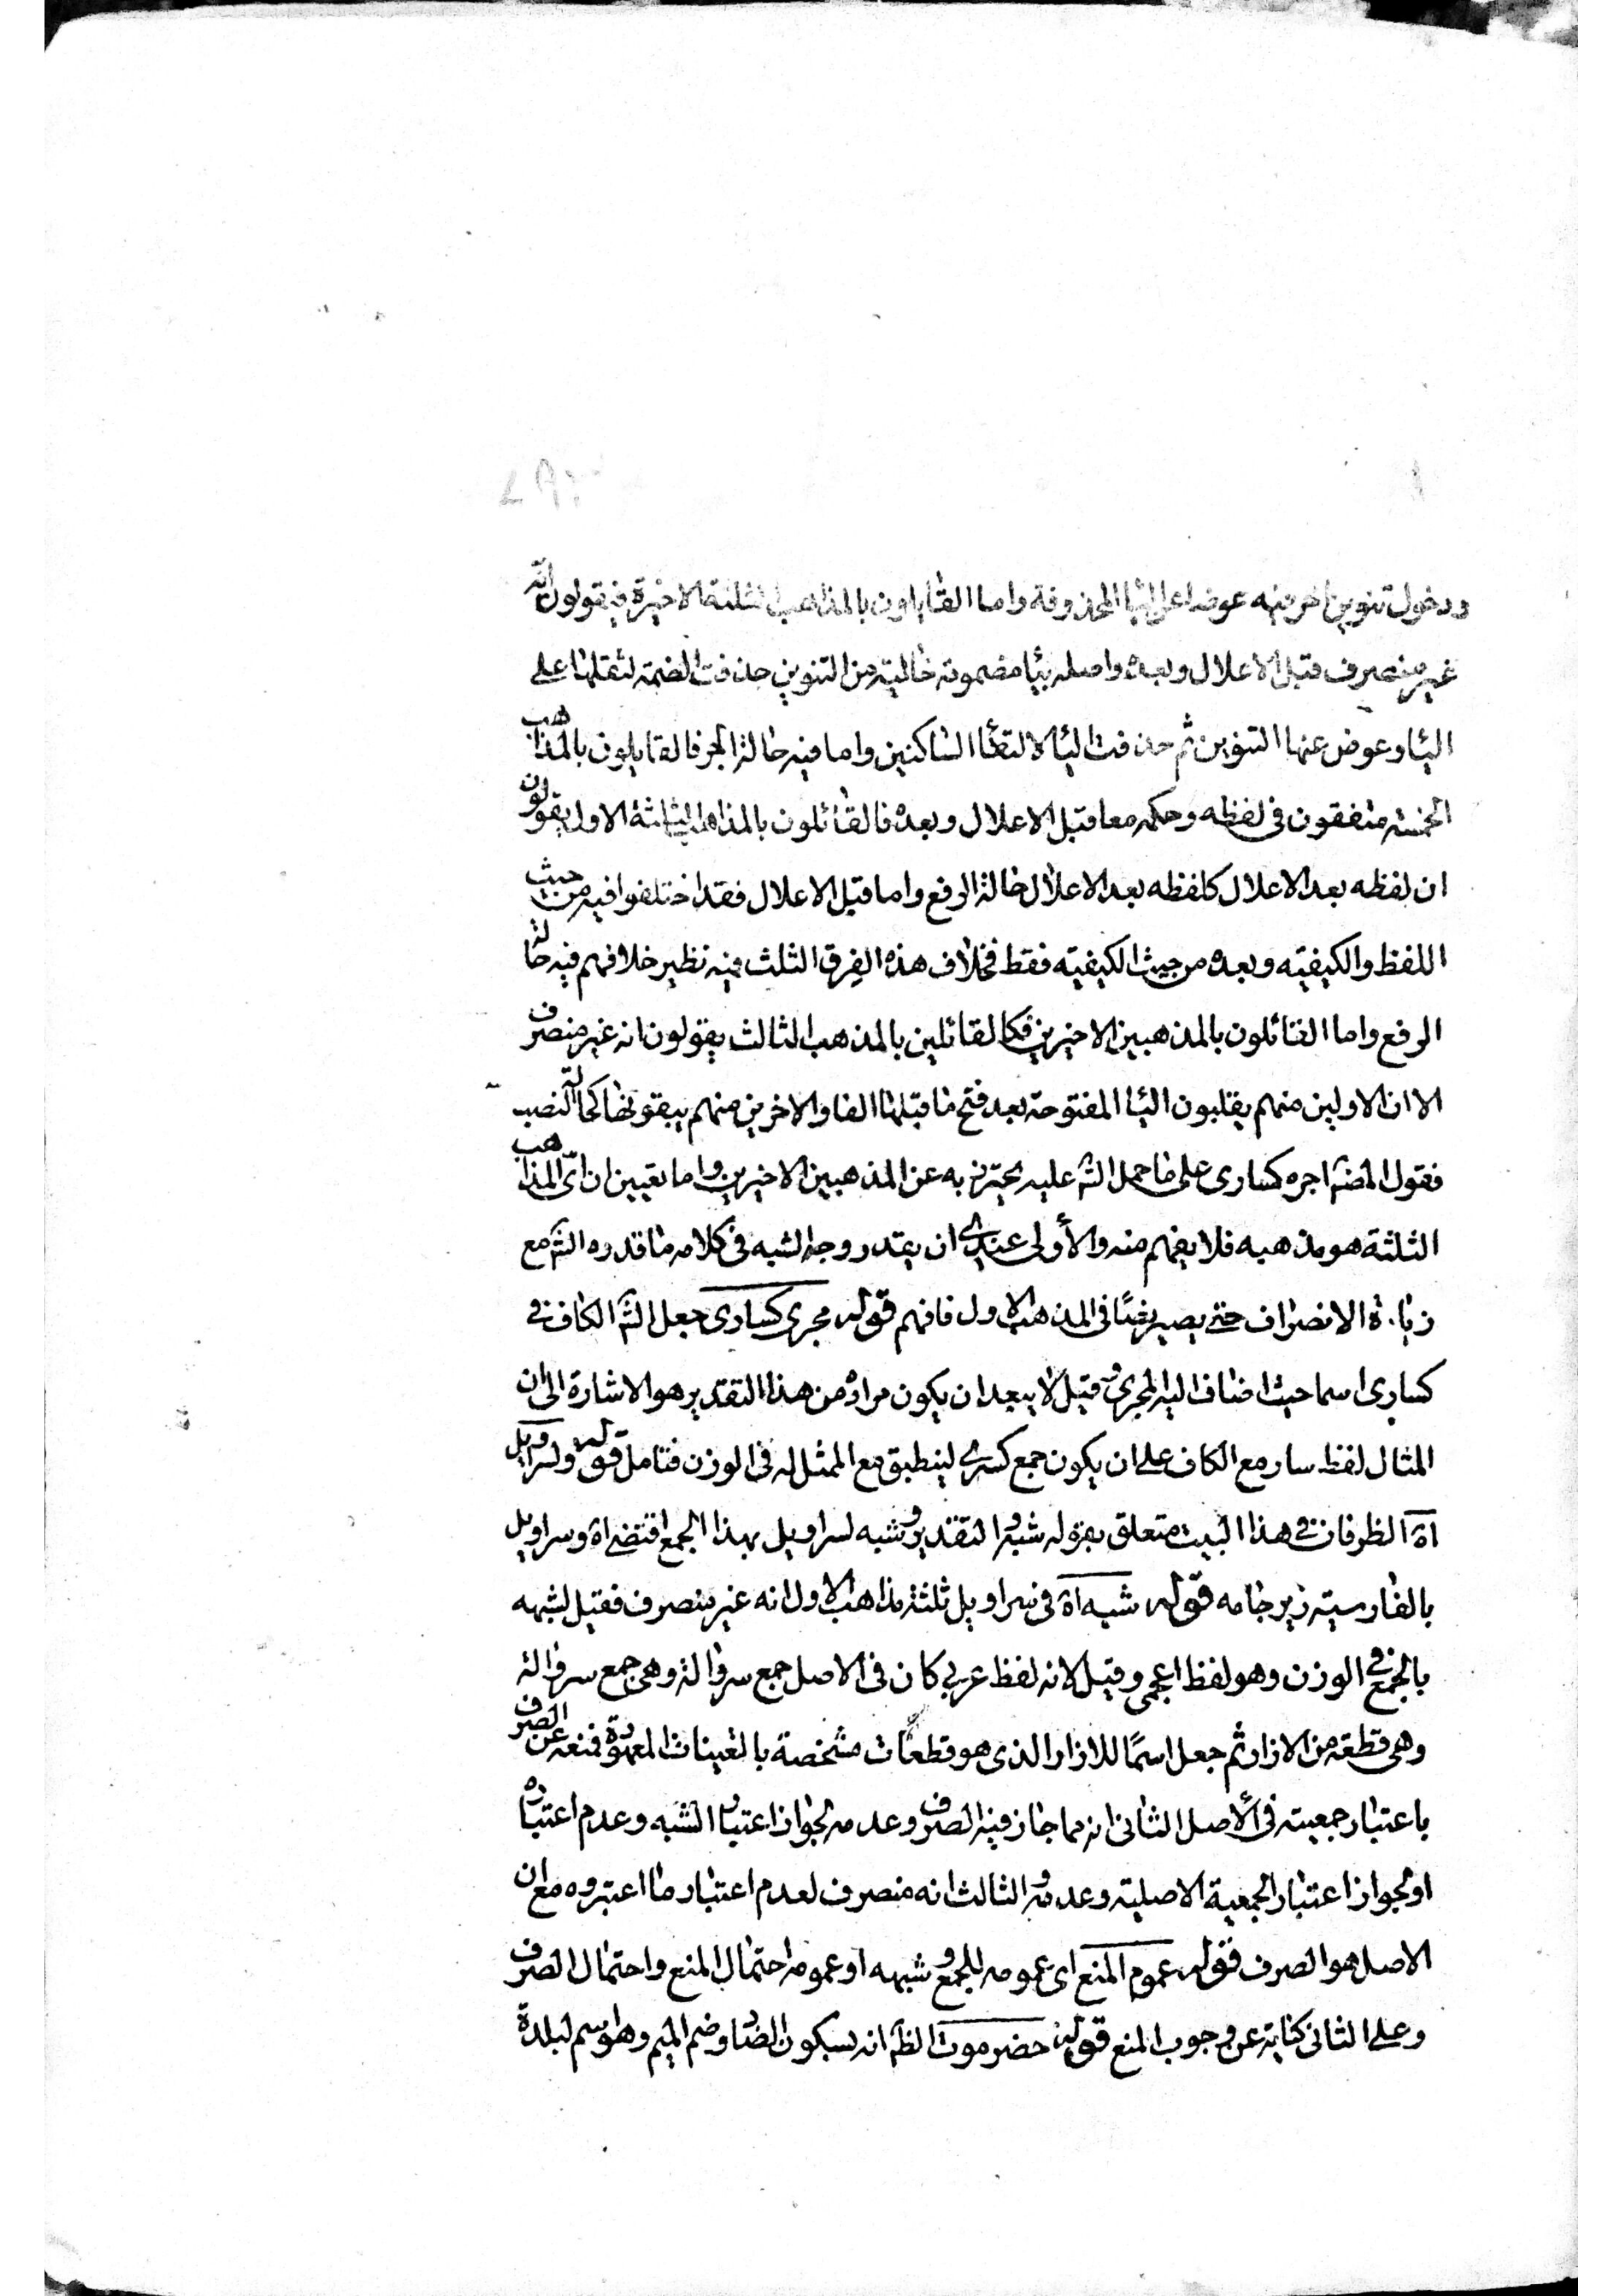 ودخول تنوين اخر منه عوضا عن اليا المحذوفة واما القايلون بالمذاهب الثلثة الاخيرة فيقولون انه
غير منصرف قبل الاعلال وبعده واصله بيا مضمومة خالية من التنوين حذفت الضمة لثقلها على
اليا وعوض عنها التنوين ثم حذفت اليا لالتقا الساكنين واما فيه حالة الجر فالقايلون بالمذاهب
الخمسة متفقون فى لفظه وحكمه معا قبل الاعلال وبعده فالقائلون بالمذاهب الثلاثة الاول يقولون
ان لفظه بعد الاعلال كلفظه بعد الاعلال حالة الرفع واما قبل الاعلال فقد اختلفوا فيه من حيث
اللفظ والكيفية وبعده من حيث الكيفية فقط فخلاف هذه الفرق الثلث فيه نظير خلافهم فيه حالة
الرفع واما القائلون بالمذهبين الاخيرين فكالقائلين بالمذهب الثالث يقولون انه غير منصرف
الا ان الاولين منهم يقلبون اليا المفتوحة بعد فتح ما قبلها الفا والاخرين منهم يبقونها كحالة النصب
فقول المص اجره كسارى على ما حمل الش عليه يحترز به عن المذهبين الاخيرين واما تعيين ان اى المذاهب
الثلثة هو مذهبه فلا يفهم منه والأولى عندى ان يقدر وجه الشبه فى كلامه ما قدره الش مع
زيادة الانصراف حتى يصير نصًا فى المذهب الاول فافهم قوله مجرى كسارى جعل الش الكاف فى
كسارى اسما حيث اضاف اليه المجرى وقيل لا يبعد ان يكون مراده من هذا التقدير هو الاشارة الى ان
المثال لفظ سار مع الكاف على ان يكون جمع كسرى لينطبق مع الممثل له فى الوزن فتامل قوله ولسراويل
اه الظرفان فى هذا البيت متعلق بقوله شبه والتقدير وشبه لسراويل بهذا الجمع اقتضى اه وسراويل
بالفارسية زير جامه قوله شبه اه فى سراويل ثلثة مذاهب الاول انه غير منصرف فقيل لشبهه
بالجمع فى الوزن وهو لفظ اعجمى وقيل لانه لفظ عربى كان فى الاصل جمع سروالة وهى جمع سروالة
وهى قطعة من الازار ثم جعل اسمًا للازار الذى هو قطعات مشخصة بالتعينات المعهودة فمنعه عن الصرف
باعتبار جمعيته فى الأصل الثانى انه مما جاز فيه الصرف وعدمه لجواز اعتبار الشبه وعدم اعتباره
او لجواز اعتبار الجمعية الاصلية وعدمه والثالث انه منصرف لعدم اعتبار ما اعتبروه مع ان
الاصل هو الصرف فقوله عموم المنع اى عمومه للجمع وشبهه او عمومه احتمال المنع واحتمال الصرف
وعلى الثانى كناية عن وجوب المنع قوله حضرموت الظ انه بسكون الضاد وضم الميم وهو اسم لبلدة